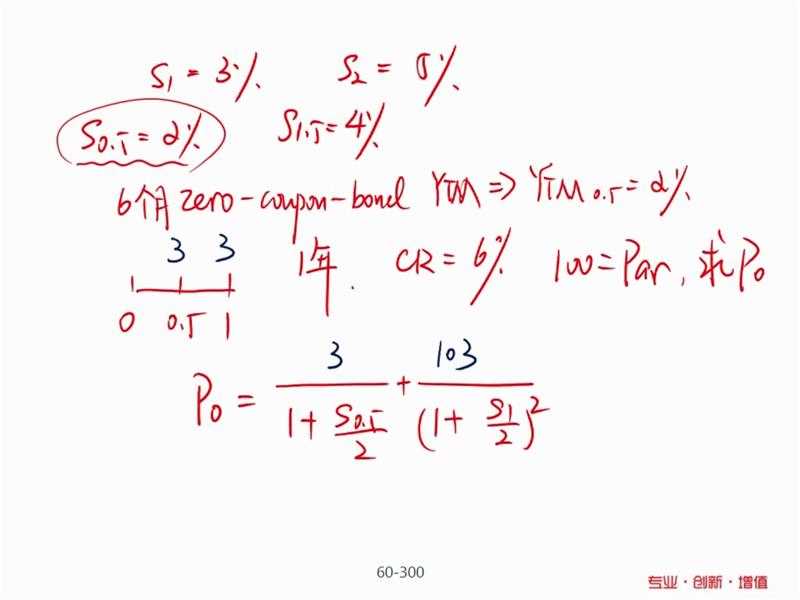 S₁ = 3% S₂ = 5%
S₀.₅ = 2% S₁.₅ = 4%
6个月 zero-coupon-bond YTM ⇒ YTM₀.₅ = 2%
3 3 1年. CR = 6% 100 = Par, 求 P₀
0 0.5 1
3 103
P₀ = ─── + ───
1 + S₀.₅/2 (1 + S₁/2)²
60-300
专业·创新·增值